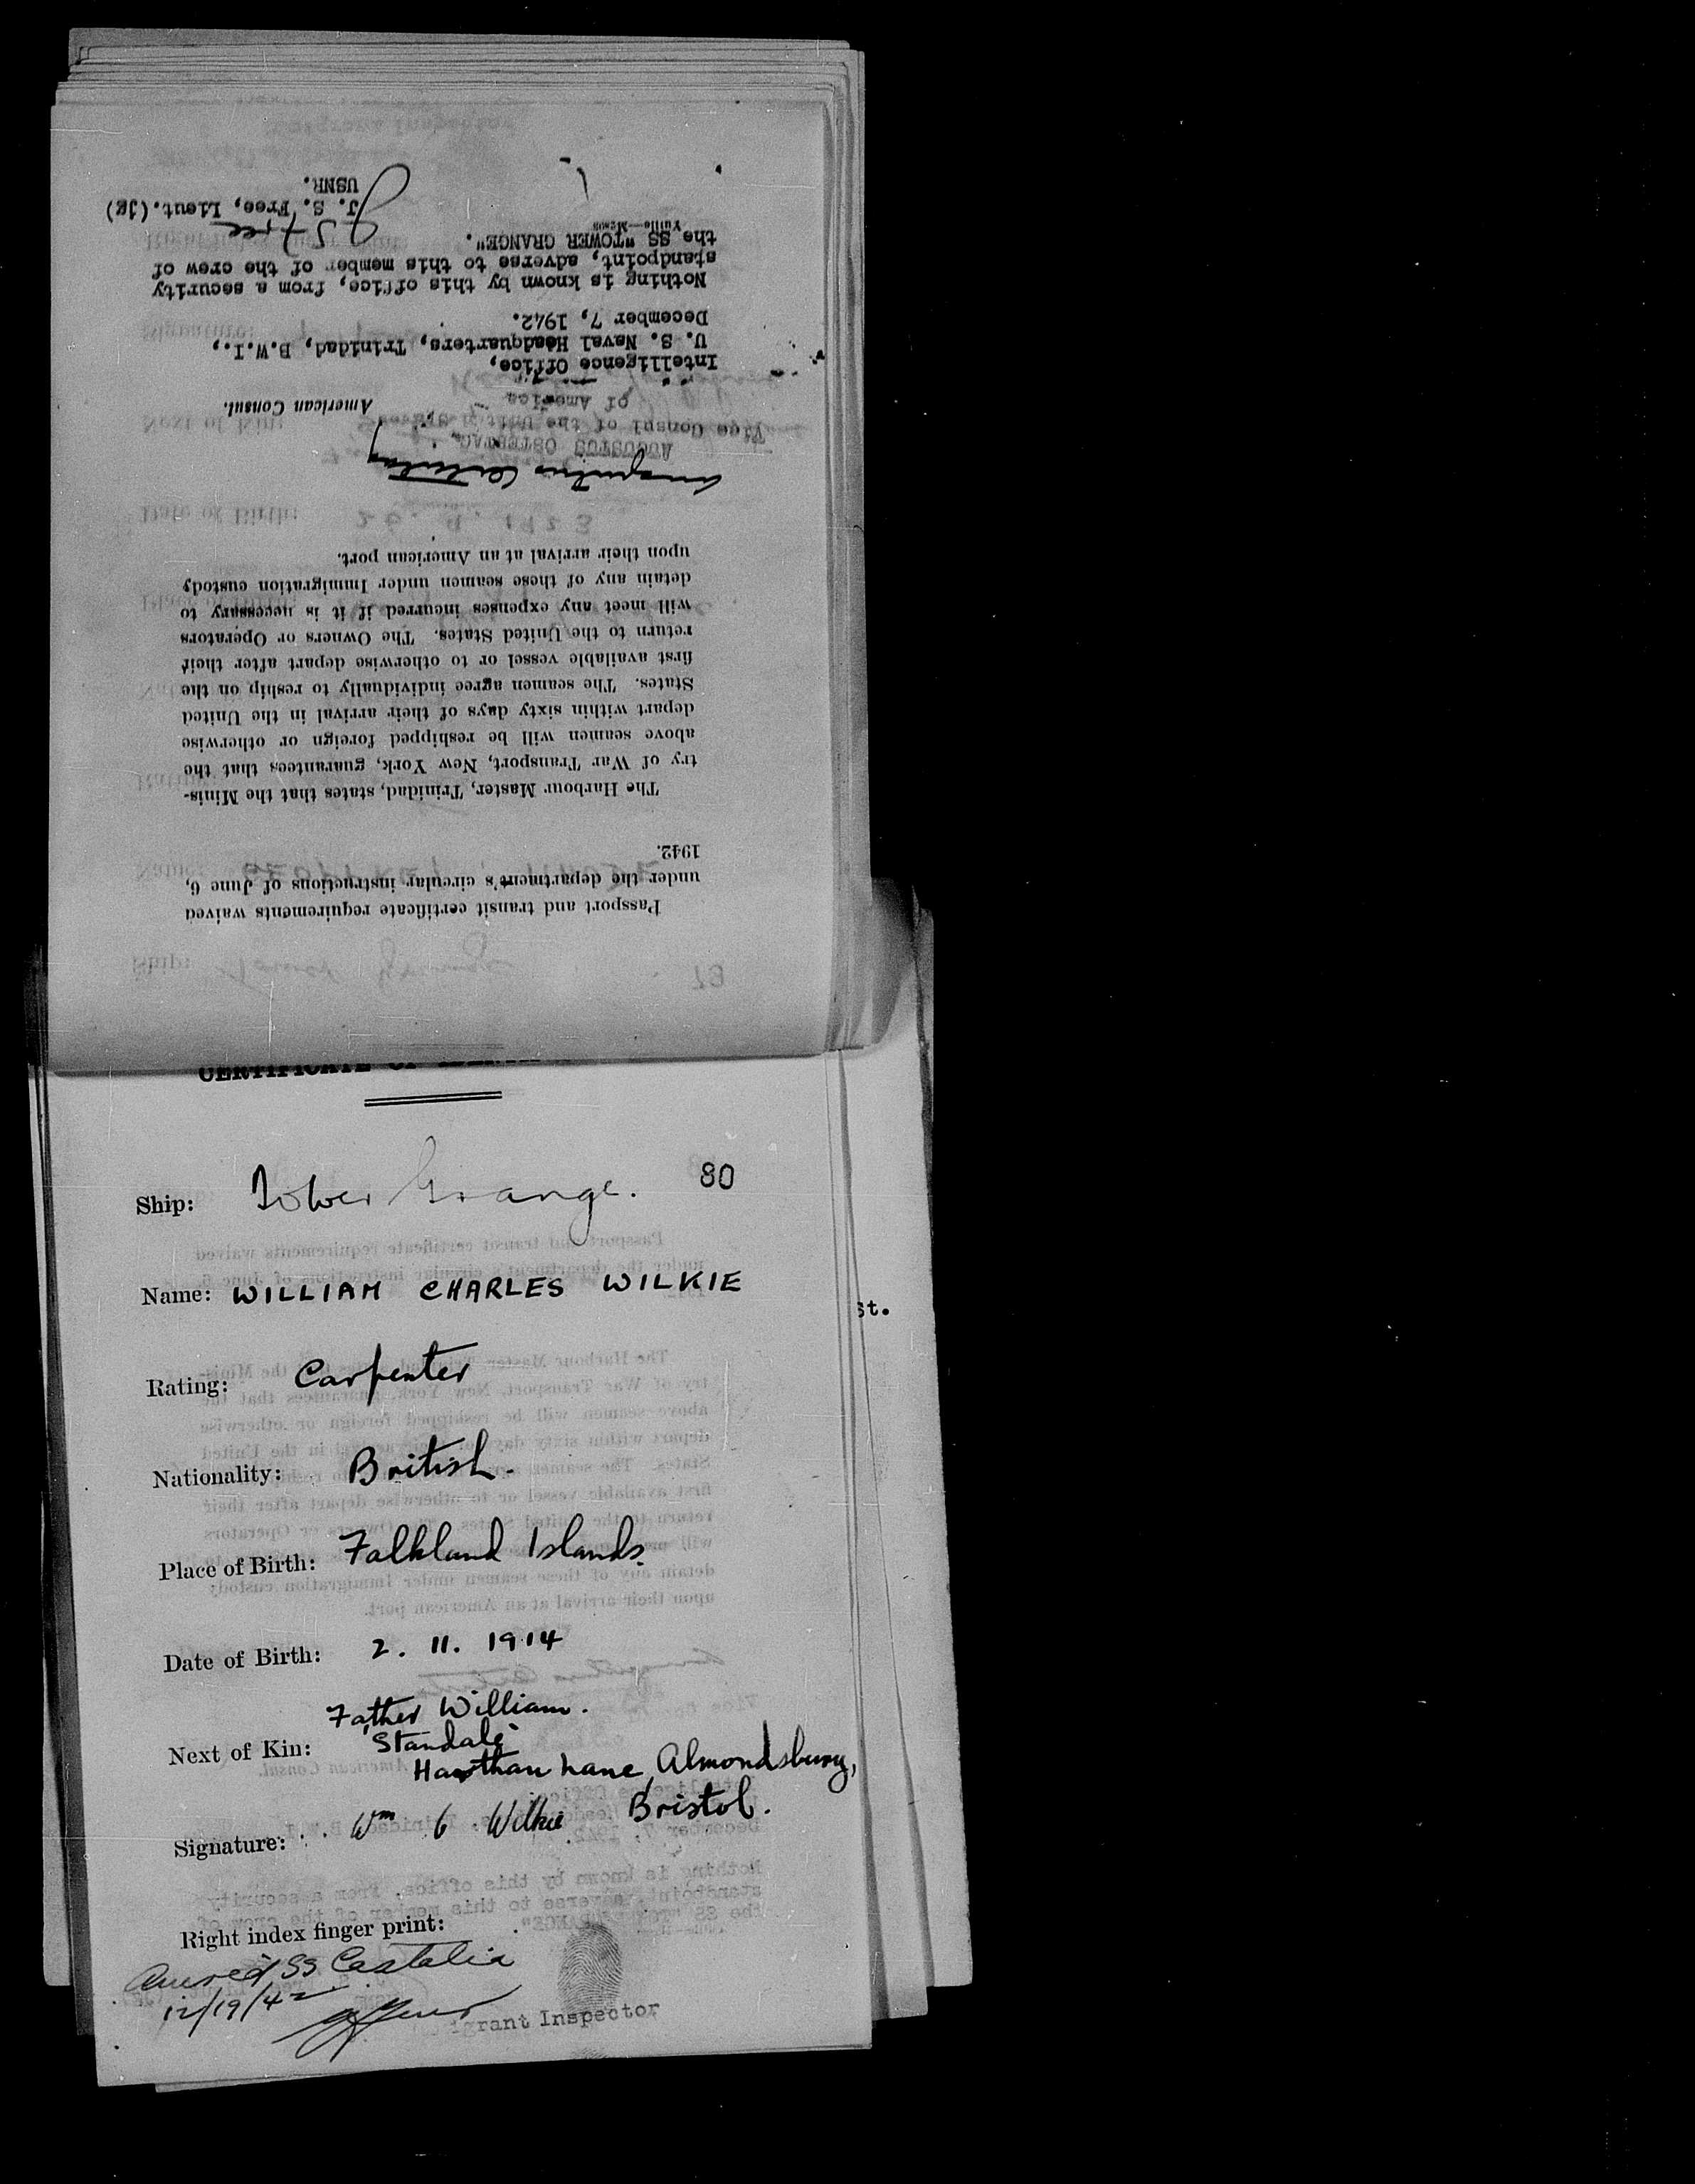 Passport and transit certificate requirements waived
under the department's circular instructions of June 6,
1942.
The Harbour Master, Trinidad, states that the Minis-
try of War Transport, New York, guarantees that the
above seamen will be reshipped foreign or otherwise
depart within sixty days of their arrival in the United
States. The seamen agree individually to reship on the
first available vessel or to otherwise depart after their
return to the United States. The Owners or Operators
will meet any expenses incurred if it is necessary to
detain any of these seamen under Immigration custody
upon their arrival at an American port.
AUGUSTUS OSTERTAG
Vice Consul of the United States
of America
American Consul.
Intelligence Office,
U. S. Naval Headquarters, Trinidad, B.W.I.,
December 7, 1942.
Nothing is known by this office, from a security
standpoint, adverse to this member of the crew of
the SS "TOWER GRANGE".
J S Free
J. S. Free, Lieut.(jg)
USNR.
CERTIFICATE OF
Ship: Tower Grange. 80
Name: WILLIAM CHARLES WILKIE
Rating: Carpenter
Nationality: British.
Place of Birth: Falkland Islands.
Date of Birth: 2. 11. 1914
Father William.
Next of Kin: "Standale"
Lane, Almondsbury,
Bristol.
Signature: Wm C Wilkie
Right index finger print:
SS Castalia
12/19/42
igrant Inspector
st.